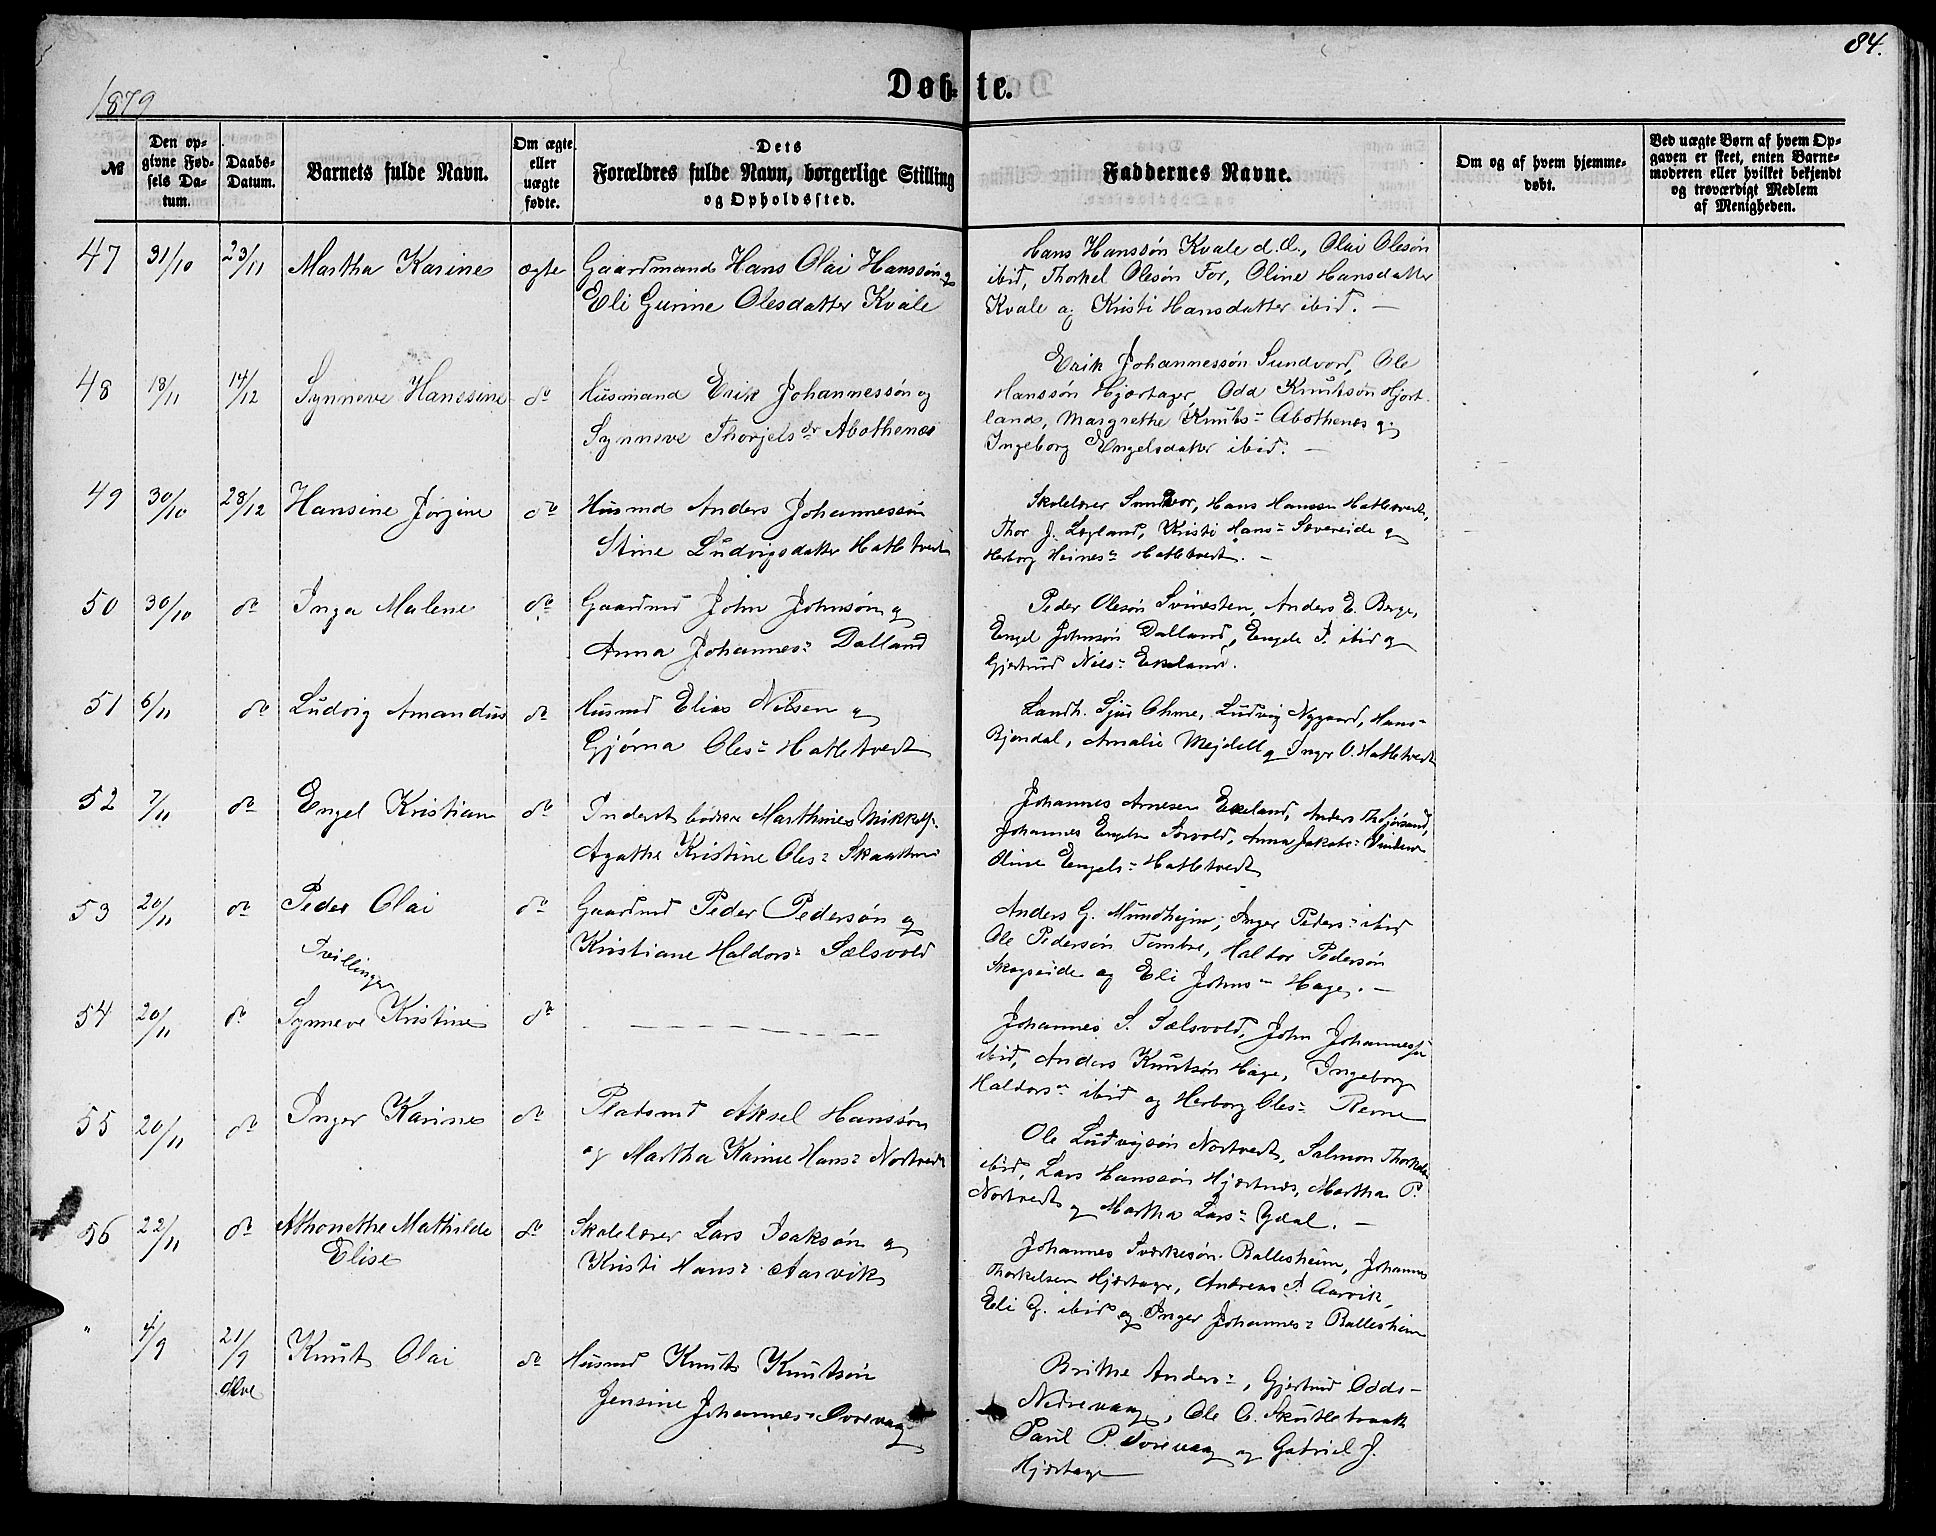 84.
1879
Døbte.
№
Den opgivne Fødsels Datum.
Daabs-Datum.
Barnets fulde Navn.
Om ægte eller uægte fødte.
Dets Forældres fulde Navn, borgerlige Stilling og Opholdssted.
Faddernes Navne.
Om og af hvem hjemmedøbt.
Ved uægte Børn af hvem Opgaven er skeet, enten Barnemoderen eller hvilket bekjendt og troværdigt Medlem af Menigheden.
47 31/10 23/11 Martha Karine ægte
Gaardmand Hans Olai Hanssøn og
Eli Gurine Olesdatter Kvale
Hans Hanssøn Kvale d.Æ., Olai Olesøn
ibid, Thorkel Olesøn Tor, Oline Hansdatter
Kvale og Kristi Hansdatter ibid. —
48 18/11 14/12 Synneve Hanssine do
Husmand Erik Johannessøn og
Synneve Thorjelsdr Abothenæs
Erik Johannessøn Sundvord, Ole
Hanssøn Hjertager, Odd Knutssøn Hjort-
land, Margrethe Knuts- Abothenæs og
Ingeborg Engelsdatter ibid. —
49 30/10 28/12 Hansine Jørgine do
Husmd Anders Johannessøn
Stine Ludvigsdatter Hatletvedt
Skolelærer Sundvor, Hans Hanssen Hatletvedt,
Thor J. Lygland, Kristi Hans- Sævereide og
Herborg Heines- Hatletvedt. —
50 30/10 do Inga Malene do
Gaardmd John Johnsøn og
Anna Johannes- Dalland
Peder Olesøn Svinesten, Anders E. Berge,
Engel Johnsøn Dalland, Engele J. ibid og
Gjertrud Nils- Ekeland.
51 6/11 do Ludvig Amandus do
Husmd Elias Nilsen og
Gjørna Oles- Hatletvedt
Landh. Sjur Ohme, Ludvig Nygaard, Hans
Bjøndal, Amalie Mejdell og Inger O. Hatletvedt
52 7/11 do Engel Kristian do
Inderst bødker Marthines Mikkels.
Agathe Kristine Oles-
Johannes Arnesen Ekeland, Anders
Johannes Engels Anna Jakobs-
Oline Engels- Hatletvedt
53 20/11 do Peder Olai do
Gaardmd Peder Pedersøn og
Kristiane Haldors- Sælsvold
Anders G. Mundhejm, Inger Peders- ibid
Ole Pedersøn Tombre, Haldor Pedersøn
Skogseide og Eli Johns- Hage. —
Tvillinger
54 20/11 do Synneve Kristine do
Johannes S. Sælsvold, John Johannessøn
ibid, Anders Knutsøn Hage, Ingeborg
Haldors- ibid og Herborg Oles- Reme
55 20/11 do Inger Karine do
Pladsmd Aksel Hanssøn
og Martha Karine Hans- Nortvedt
Ole Ludvigsøn Nortvedt, Salmon Thorkels
ibid, Lars Hanssøn Hjertnæs, Martha P.
Nortvedt og Martha Lars- Ydal. —
56 22/11 do Athonethe Mathilde do
Elise
Skolelærer Lars Isaksøn og
Kristi Hans- Aarvik
Johannes Sverkesøn Ballesheim, Johannes
Thorkelsen Hjertager, Andreas J. Aarvik,
Eli G. ibid og Inger Johannes- Ballesheim
" 4/9 21/9 Knut Olai do
Ølve
Husmd Knut Knutsøn
Jensine Johannes- Tovevaag
Britha Anders-, Gjertrud Odds-
Nedrevaag, Ole O. Skutletvædt
Paul P. Tovevaag og Gabriel J.
Hjertager